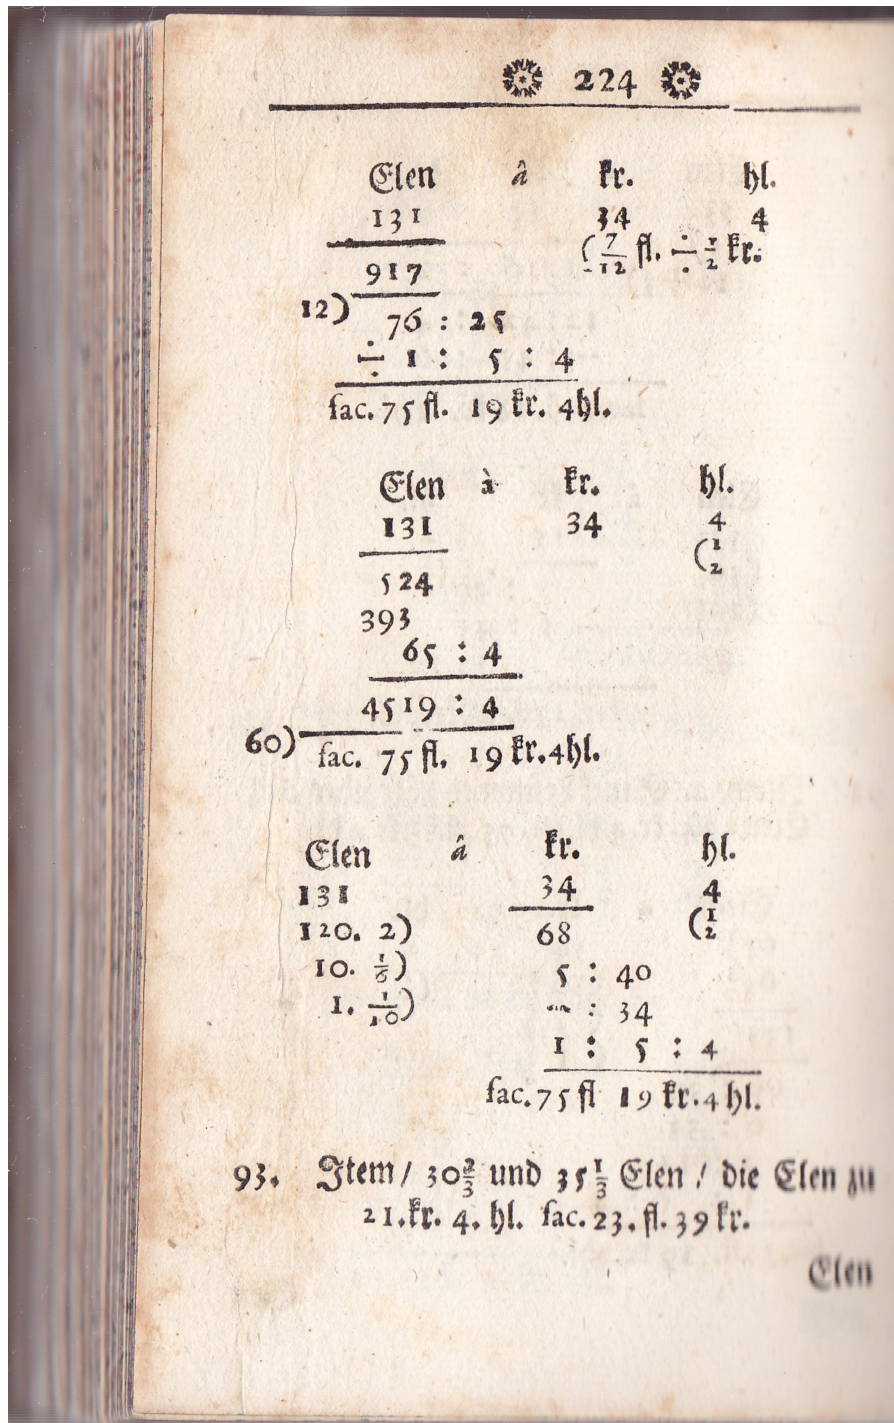 224
Elen â kr. hl.
131 34 4
(7/12 fl. ÷ 1/2 kr.
917
12) 76 : 25
÷ 1 : 5 : 4
fac. 75 fl. 19 kr. 4 hl.
Elen à kr. hl.
131 34 4
(1/2
524
393
65 : 4
4519 : 4
60) fac. 75 fl. 19 kr. 4 hl.
Elen â kr. hl.
131 34 4
120. 2) 68 (1/2
10. 1/6) 5 : 40
1. 1/10) — : 34
1 : 5 : 4
fac. 75 fl 19 kr. 4 hl.
93. Item / 30 2/3 und 35 1/3 Elen / die Elen zu
21. kr. 4. hl. fac. 23. fl. 39 kr.
Elen